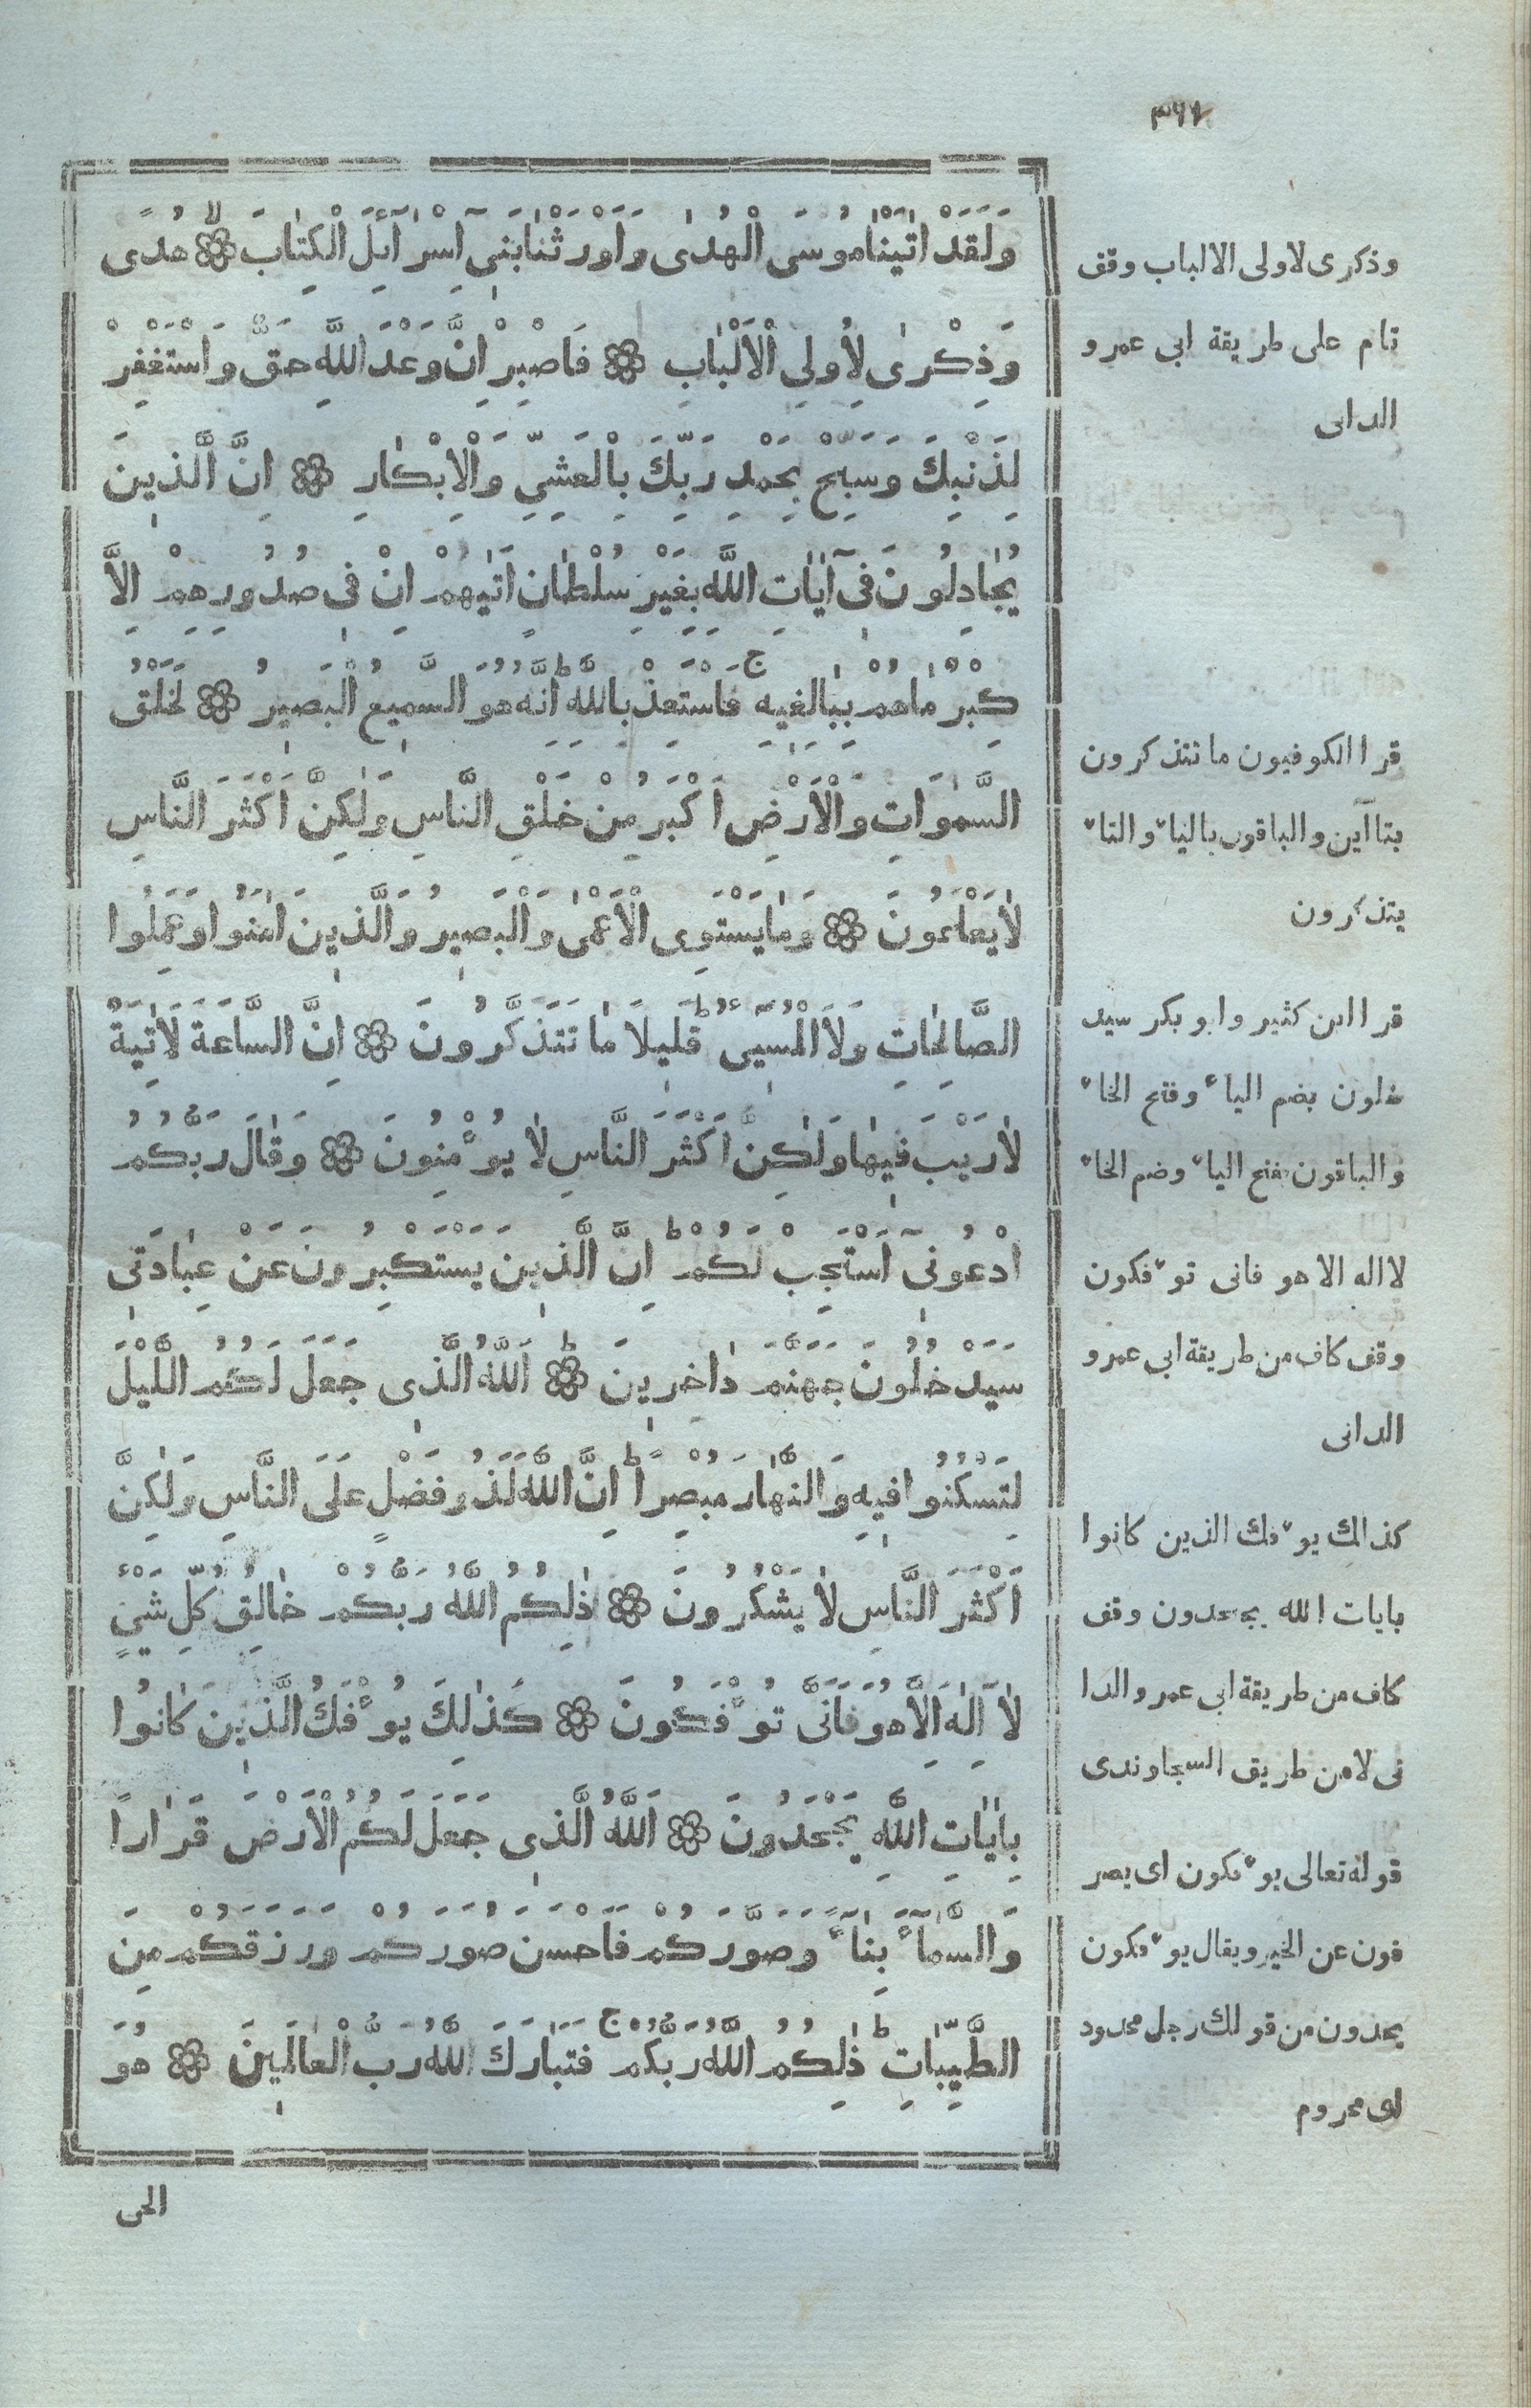 وَلَقَدْ اٰتَيْنَا مُوسَى الْهُدٰى وَاَوْرَثْنَا بَنِىٓ اِسْرَآئِلَ الْكِتَابَ ۙ هُدًى
وَذِكْرٰى لِاُولِى الْاَلْبَابِ فَاصْبِرْ اِنَّ وَعْدَ اللّٰهِ حَقٌّ وَاسْتَغْفِرْ
لِذَنْبِكَ وَسَبِّحْ بِحَمْدِ رَبِّكَ بِالْعَشِىِّ وَالْاِبْكَارِ اِنَّ الَّذِينَ
يُجَادِلُونَ فِىٓ اٰيَاتِ اللّٰهِ بِغَيْرِ سُلْطَانٍ اَتٰيهُمْ اِنْ فِى صُدُورِهِمْ اِلَّا
كِبْرٌ مَا هُمْ بِبَالِغِيهِ ج فَاسْتَعِذْ بِاللّٰهِ ط اِنَّهُ هُوَ السَّمِيعُ الْبَصِيرُ لَخَلْقُ
السَّمٰوَاتِ وَالْاَرْضِ اَكْبَرُ مِنْ خَلْقِ النَّاسِ وَلٰكِنَّ اَكْثَرَ النَّاسِ
لَا يَعْلَمُونَ وَمَا يَسْتَوِى الْاَعْمٰى وَالْبَصِيرُ وَالَّذِينَ اٰمَنُوا وَعَمِلُوا
الصَّالِحَاتِ وَلَا الْمُسِىٓءُ ط قَلِيلًا مَا تَتَذَكَّرُونَ اِنَّ السَّاعَةَ لَاٰتِيَةٌ
لَا رَيْبَ فِيهَا وَلٰكِنَّ اَكْثَرَ النَّاسِ لَا يُؤْمِنُونَ وَقَالَ رَبُّكُمُ
ادْعُونِىٓ اَسْتَجِبْ لَكُمْ ط اِنَّ الَّذِينَ يَسْتَكْبِرُونَ عَنْ عِبَادَتِى
سَيَدْخُلُونَ جَهَنَّمَ دَاخِرِينَ ط اَللّٰهُ الَّذِى جَعَلَ لَكُمُ اللَّيْلَ
لِتَسْكُنُوا فِيهِ وَالنَّهَارَ مُبْصِرًا ط اِنَّ اللّٰهَ لَذُو فَضْلٍ عَلَى النَّاسِ وَلٰكِنَّ
اَكْثَرَ النَّاسِ لَا يَشْكُرُونَ ذٰلِكُمُ اللّٰهُ رَبُّكُمْ خَالِقُ كُلِّ شَىْءٍ
لَآ اِلٰهَ اِلَّا هُوَ فَاَنّٰى تُؤْفَكُونَ كَذٰلِكَ يُؤْفَكُ الَّذِينَ كَانُوا
بِاٰيَاتِ اللّٰهِ يَجْحَدُونَ اَللّٰهُ الَّذِى جَعَلَ لَكُمُ الْاَرْضَ قَرَارًا
وَالسَّمَآءَ بِنَآءً وَصَوَّرَكُمْ فَاَحْسَنَ صُوَرَكُمْ وَرَزَقَكُمْ مِنَ
الطَّيِّبَاتِ ط ذٰلِكُمُ اللّٰهُ رَبُّكُمْ ج فَتَبَارَكَ اللّٰهُ رَبُّ الْعَالَمِينَ هُوَ
الحى
وذكرى لاولى الالباب وقف
تام على طريقة ابى عمرو
الدانى
قرا الكوفيون ما تتذكرون
بتاآين والباقون بالياء والتاء
يتذكرون
قرا ابن كثير وابو بكر سيد
خلون بضم الياء وفتح الخاء
والباقون بفتح الياء وضم الخاء
لا اله الا هو فانى تؤفكون
وقف كاف من طريقة ابى عمرو
الدانى
كذالك يؤفك الذين كانوا
بايات الله يجحدون وقف
كاف من طريقة ابى عمرو الدا
نى لا من طريق السجاوندى
قوله تعالى يؤفكون اى يصر
فون عن الخير ويقال يؤفكون
يحدون من قولك رجل محدود
اى محروم